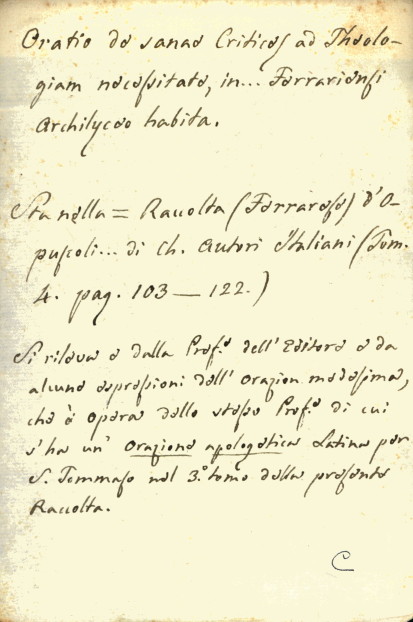 Oratio de sanae Critices ad Theolo-
giam necessitate, in... Ferrariensi
Archilyceo habita.
Sta nella = Raccolta (Ferrarese) d'O-
puscoli... di ch. autori Italiani (Tom.
4. pag. 103 — 122.)
Si rileva e dalla Pref.e dell'Editore e da
alcune espressioni dell' orazion medesima,
che è opera dello stesso Prof.e di cui
s'ha un' orazione apologetica Latina per
S. Tommaso nel 3.o tomo della presente
Raccolta.
C